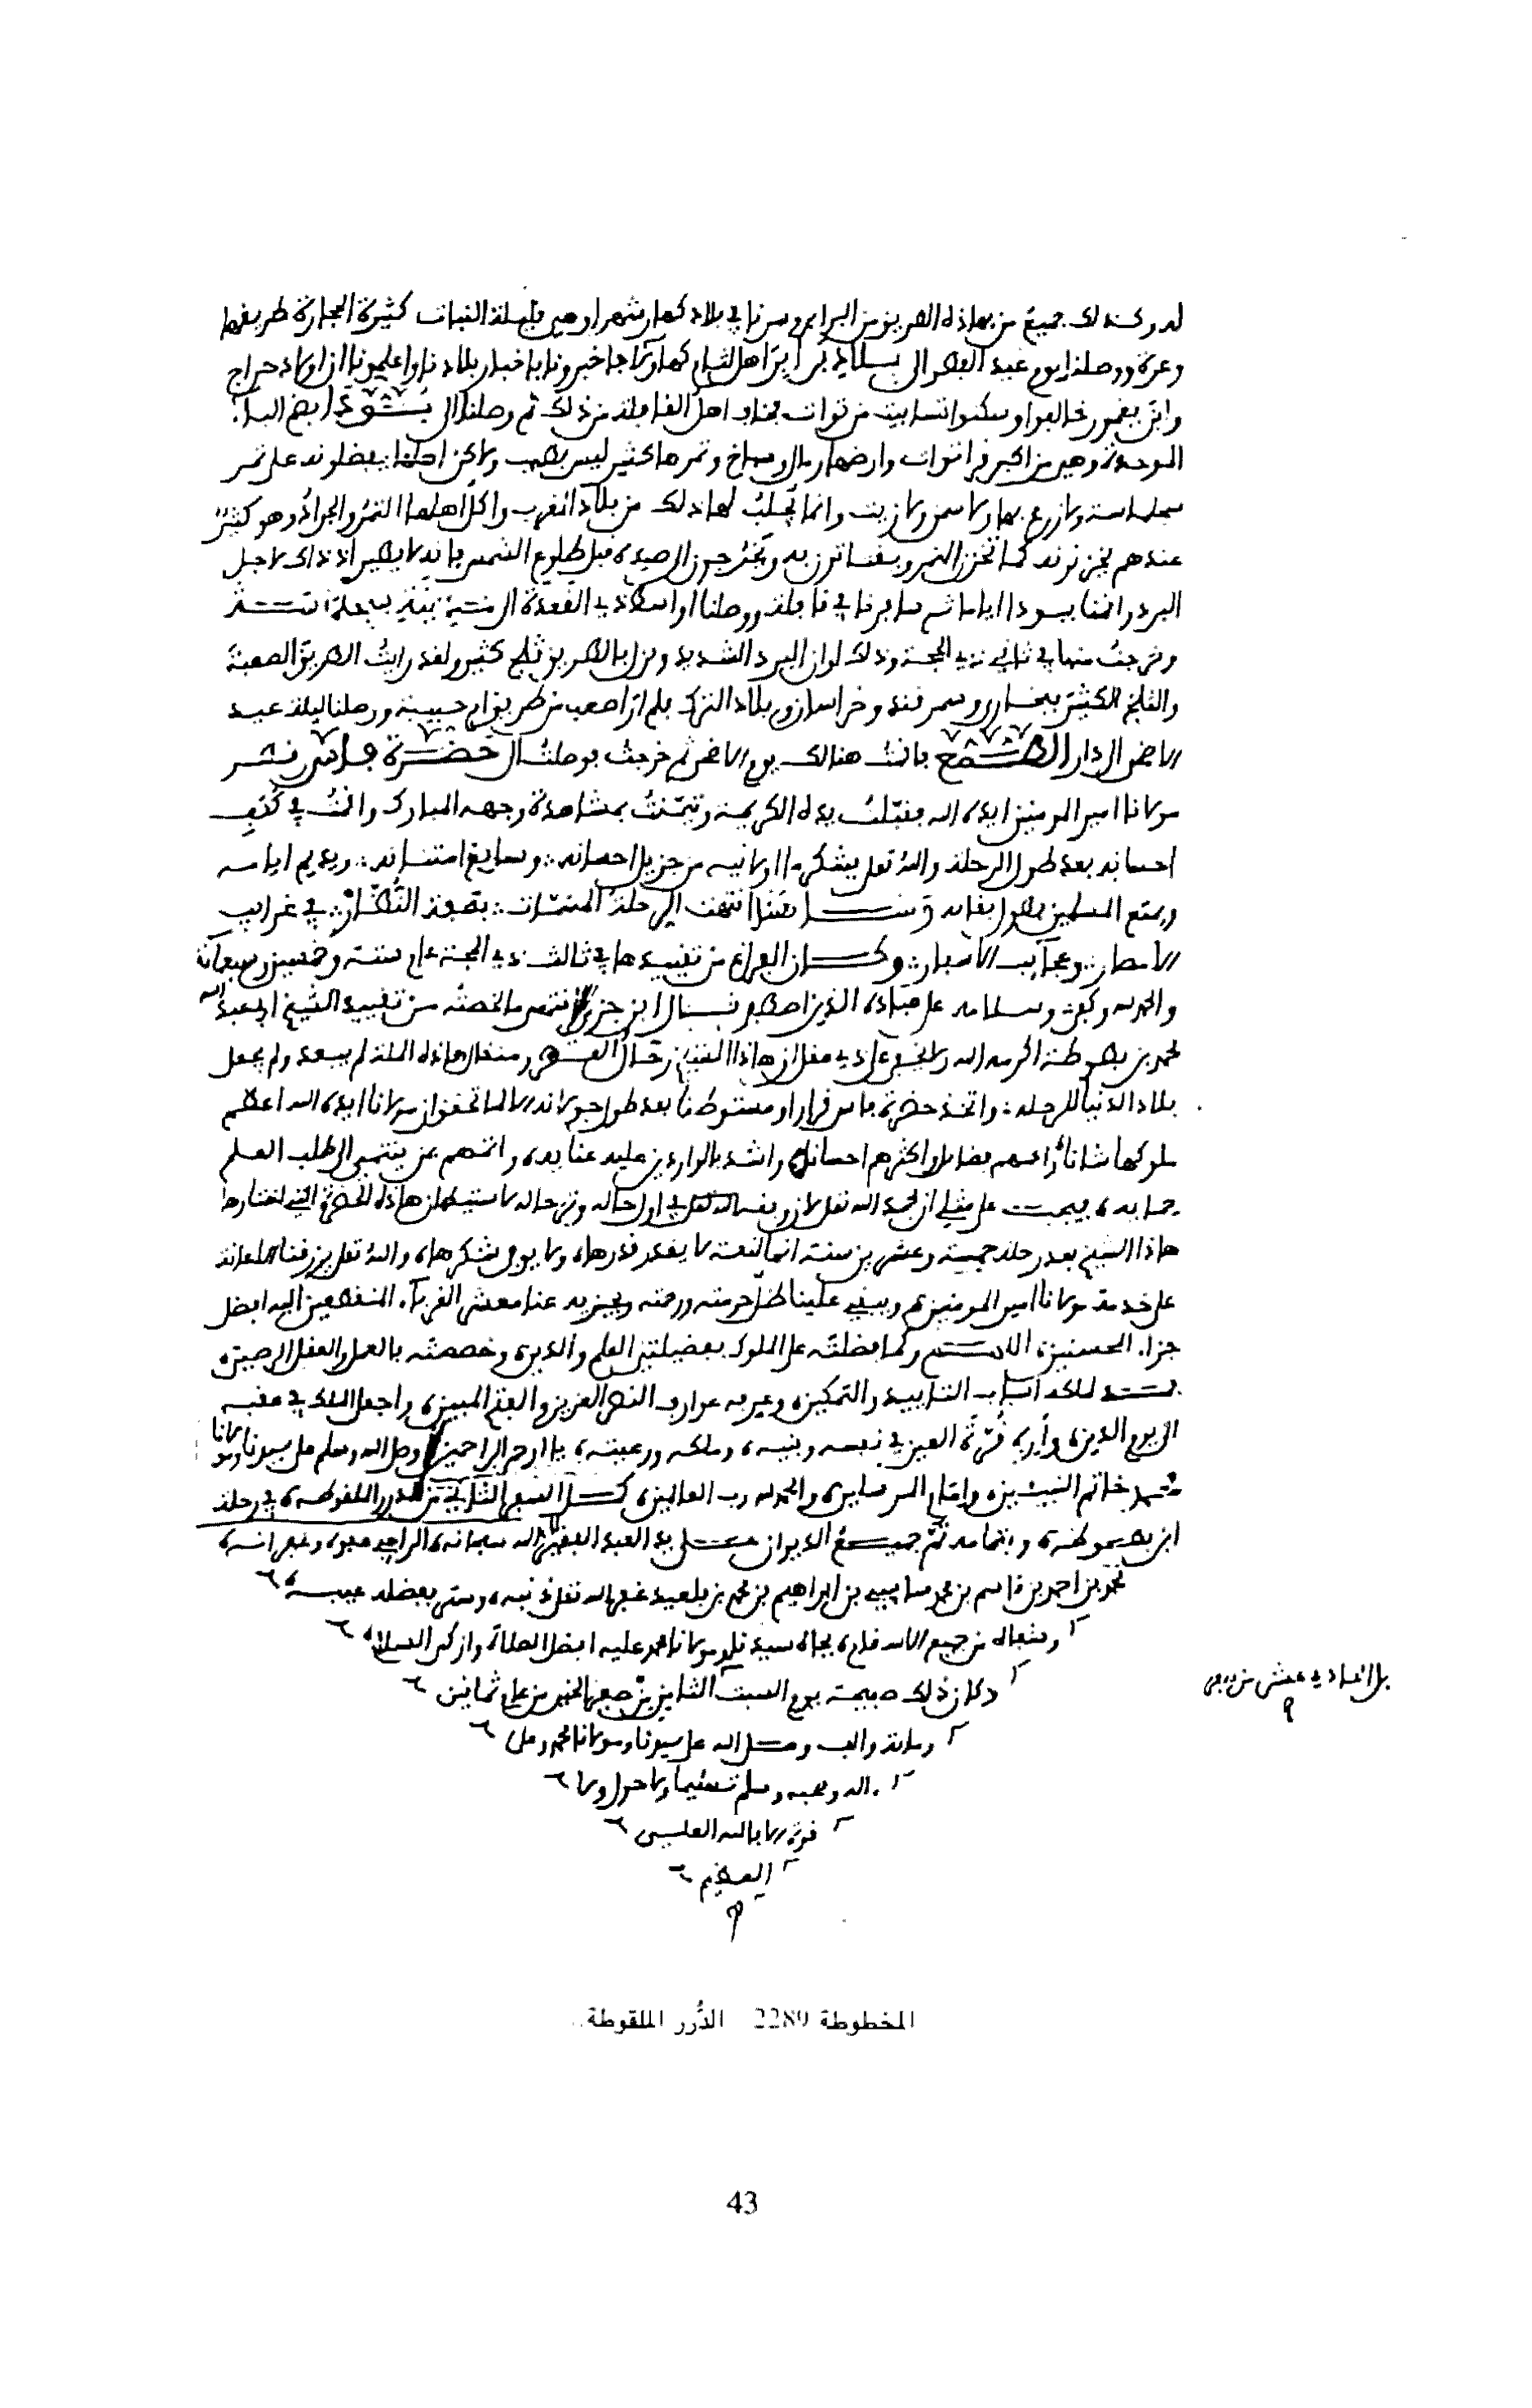 له وكذلك جميع من بهاذه الطريق من البرابر وسرنا في بلاد هكار شهرا وهي قليلة النبات كثيرة الحجارة طريقها
وعرة ووصلنا يوم عيد الفطر الى بلاد برابر اهل لثام كهاولاء فاخبرونا باخبار بلادنا واعلمونا ان اولاد خراج
وابن يغمور خالفوا وسكنوا تسابيت من توات فخاف اهل القافلة من ذلك ثم وصلنا الى بُودَا بضم الباء
الموحدة وهي من اكبر قرا توات وارضها رمال وسباخ وتمرها كثير ليس بطيب ولاكن اهلها يفضلونه على تمر
سجلماسة ولا زرع بها ولا سمن ولا زيت وانما يُجلبُ لها ذلك من بلاد المغرب واكل اهلها التمرُ والجرادُ وهو كثيرٌ
عندهم يختزنونه كما يختزن التمر ويقتاتون به ويخرجون الى صيده قبل طلوع الشمس فانه لا يطير اذ ذاك لاجل
البرد واقمنا ببودا اياما ثم سافرنا في قافلة ووصلنا اواسط ذي القعدة الى مدينة سجلماسة
وخرجتُ منها في ثاني ذي الحجة وذلك اوان البرد الشديد ونزل بالطريق ثلج كثير ولقد رايتُ الطريق الصعبة
والثلج الكثير ببخارى وسمرقند وخراسان وبلاد الترك فلم ار اصعب من طريق ام جنيبة ووصلنا ليلة عيد
الاضحى الى دار الطمع فاقمت هنالك يوم الاضحى ثم خرجت فوصلتُ الى حَضْرَة فاس
مولانا امير المومنين ايده الله فقبلت يده الكريمة وتيمنتُ بمشاهدة وجهه المبارك واقمتُ في كنف
احسانه بعد طول الرحلة واللهُ تعلى يشكر ما اولانيه من جزيل احسانه وسابغ امتنانه ويديم ايامه
ويمتع المسلمين بطول بقائه وهنا انتهت الرحلةُ المسماة بتحفة النُّظّار في غرايب
الامصار وعجآيب الاسفار وكان الفراغ من تقييدها في ثالث ذي الحجة عام ستة وخمسين وسبعمائة
والحمد لله وكفى وسلام على عباده الذين اصطفى قال ابن جزي انتهى ما لخصته من تقييد الشيخ ابي عبد الله
محمد بن بطوطة اكرمه الله ولا يخفى على ذي عقل ان هاذا الشيخ رحّال العصر ومن قال هاذه الملة لم يبعد ولم يجعل
بلاد الدنيا للرحلة واتخذ حضرة فاس قرارا ومستوطنا بعد طول جولانه الا لما تحقق ان مولانا ايده الله اعظم
ملوكها شانا واعمهم فضايل واكثرهم احسانا واشدهم بالواردين عليه عناية واتمهم بمن ينتمي الى طلب العلم
حماية فيجب على مثلي ان يحمد الله تعلى لان وفقه في اول حاله وترحاله لاستيطان هاذه الحضرة التي اختارها
هاذا الشيخ بعد رحلة خمسة وعشرين سنة انها لنعمة لا يقدر قدرها ولا يوفى شكرها واللهُ تعلى يرزقنا الاعانة
على خدمة مولانا امير المومنين ويبقي علينا ظل حرمته ورحمته ويجزيه عنا معشر الغربآء المنقطعين اليه افضل
جزاء المحسنين اللهم وكما فضلته على الملوك بفضيلتي العلم والدين وخصصته بالحلم والعقل الرصين
فمد لملكه اسباب التاييد والتمكين وعرفه عوارف النصر العزيز والفتح المبين واجعل الملك في عقبه
الى يوم الدين وأرِه قُرّةَ العين في نفسه وبنيه وملكه ورعيته يا ارحم الراحمين وصلى الله وسلم على سيدنا ومولانا
محمد خاتم النبيين وامام المرسلين والحمد لله رب العالمين كمل السفر الثاني من الدرر الملقوطة في رحلة
ابن بطوطة وبتمامه تم جميعُ الديوان على يد العبد الفقير الى الله سبحانه الراجي عفوه وغفرانه
محمد بن احمد بن قاسم بن محمد ساسي بن ابراهيم بن محمد بن بلعيد غفر الله تعلى ذنبه وستر بفضله عيبه
وشفاه من جميع الاسقام بجاه سيدنا ومولانا محمد عليه افضل الصلاة وازكى السلام
وكان ذلك صبيحة يوم السبت الثاني من صفر الخير من عام ثمانين
ومائة والف وصلى الله على سيدنا ومولانا محمد وعلى
آله وصحبه وسلم تسليما ولا حول ولا
قوة الا بالله العلي
العظيم
بل الحادي عشر من
المخطوطة 2289 الدُّرر الملقوطة..
43